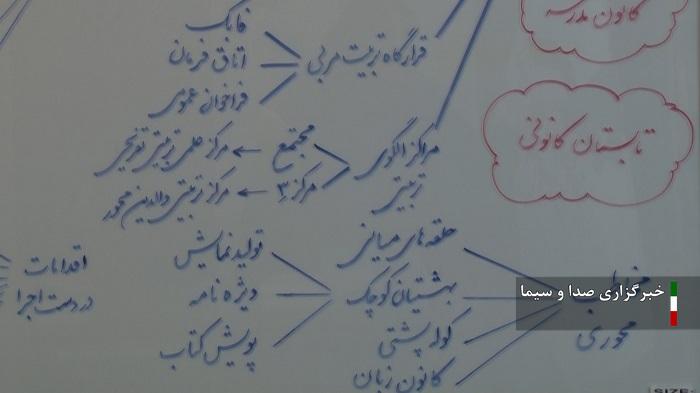 کانون مدرسه
تابستان کانونی
قرارگاه تربیت مربی
فابک
اتاق فرمان
فراخوان عمومی
مراکز الگوی
تربیتی
مجتمع ← مرکز علمی تربیتی تفریحی
مرکز ۳ ← مرکز تربیتی والدین محور
محوری
حلقه های میانی
بهشتیان کوچک
کوله پشتی
کانون زبان
تولید نمایش
ویژه نامه
پویش کتاب
اقدامات
در دست اجرا
خبرگزاری صدا و سیما
SIZE: